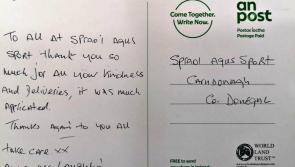 To All At Spraoi Agus
Sport thank you so
much for all your kindness
and deliveries, it was much
appricated.
Thanks again to you all
take care xx
Come Together.
Write Now.
an
post
Postas Íoctha
Postage Paid
Spraoi Agus Sport
Carndonagh
Co. Donegal
WORLD
LAND
TRUST
FREE to send